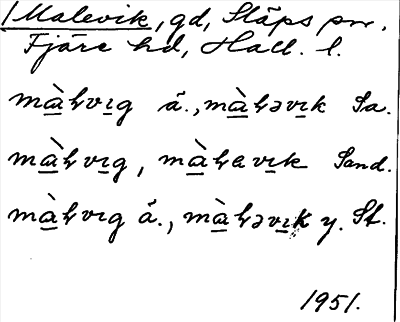 Malevik, gd, Släps sn.
Fjäre hd, Hall. l.
màⱡvıg ä., màⱡəvık Sa.
màⱡvıg, màⱡevık Sand.
màⱡvıg ä., màⱡəvık y. St.
1951.